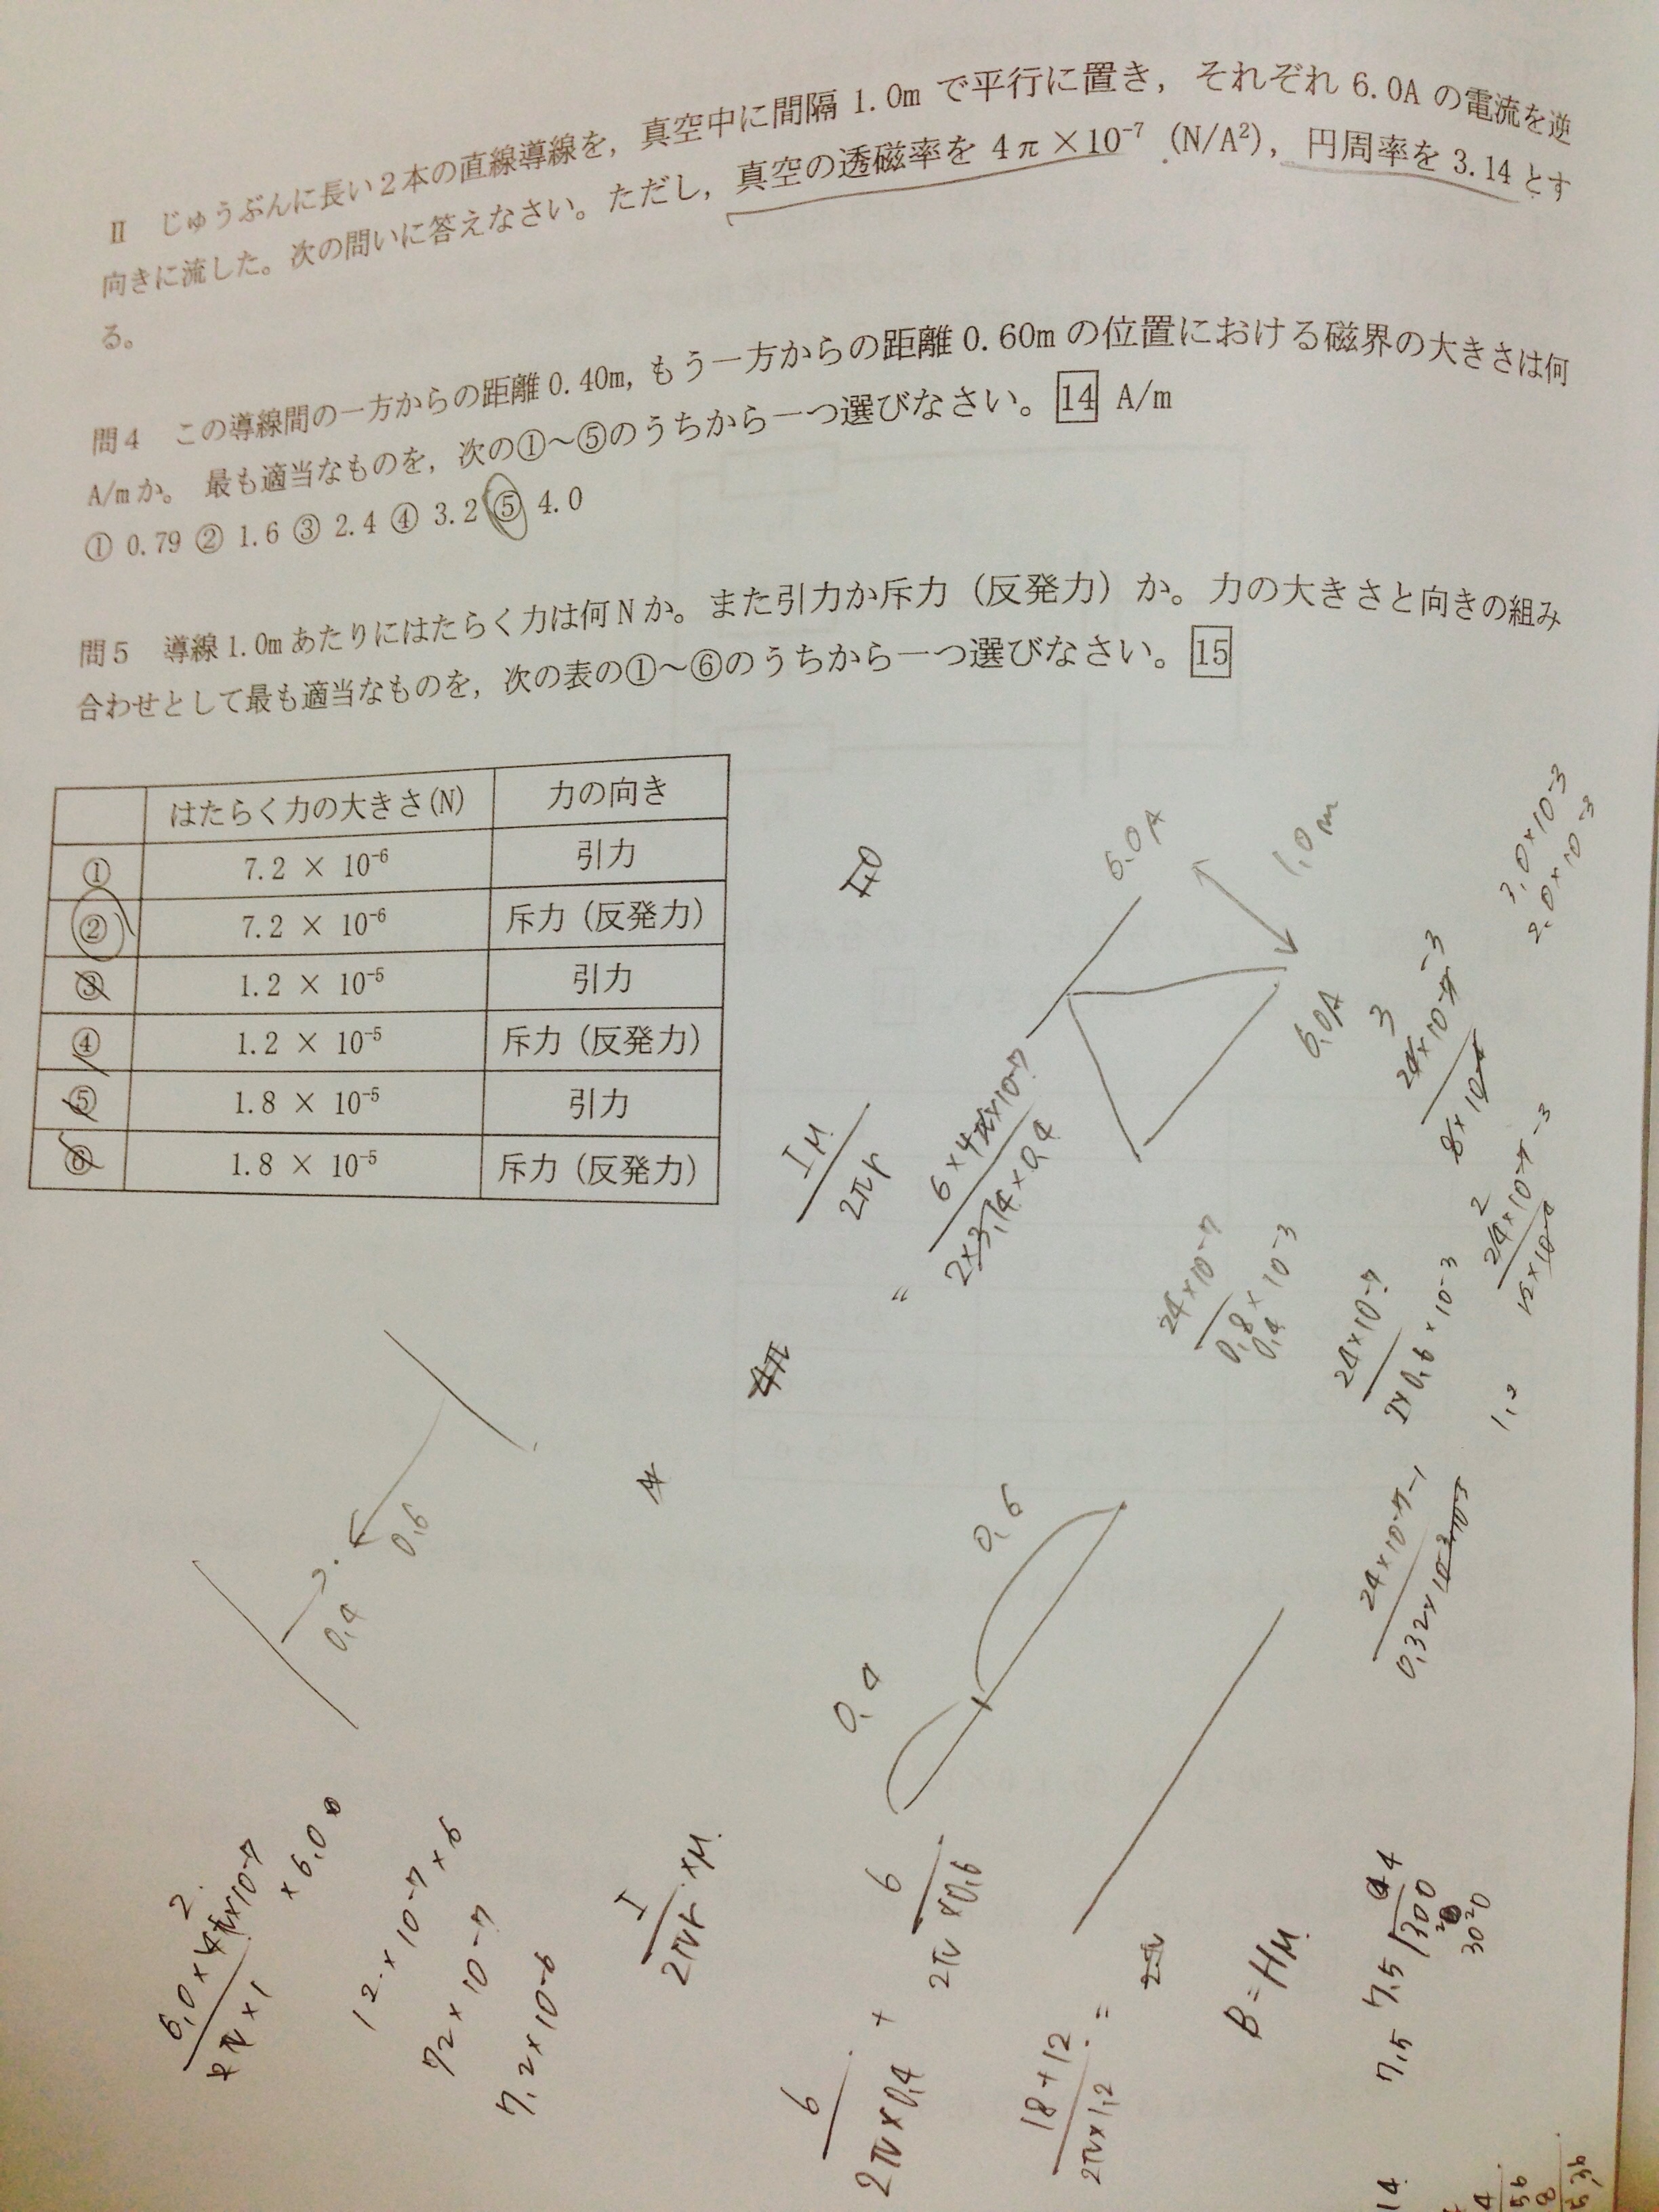 Ⅱ　じゅうぶんに長い2本の直線導線を，真空中に間隔 1.0m で平行に置き，それぞれ 6.0A の電流を逆
向きに流した。次の問いに答えなさい。ただし，真空の透磁率を 4π×10⁻⁷ (N/A²)，円周率を 3.14 とす
る。
問4　この導線間の一方からの距離 0.40m, もう一方からの距離 0.60m の位置における磁界の大きさは何
A/m か。 最も適当なものを，次の①～⑤のうちから一つ選びなさい。14 A/m
① 0.79 ② 1.6 ③ 2.4 ④ 3.2 ⑤ 4.0
問5　導線 1.0m あたりにはたらく力は何 N か。また引力か斥力（反発力）か。力の大きさと向きの組み
合わせとして最も適当なものを，次の表の①～⑥のうちから一つ選びなさい。15
はたらく力の大きさ(N) 力の向き
① 7.2 × 10⁻⁶ 引力
② 7.2 × 10⁻⁶ 斥力（反発力）
③ 1.2 × 10⁻⁵ 引力
④ 1.2 × 10⁻⁵ 斥力（反発力）
⑤ 1.8 × 10⁻⁵ 引力
⑥ 1.8 × 10⁻⁵ 斥力（反発力）
6.0A
1.0m
6.0A
3.0×10⁻³
2.0×10⁻³
Iμ
2πr
6×4π×10⁻⁷
2×3.14×0.4
24×10⁻⁷
24×10⁻⁷
2×0.6×10⁻³
1.2
4π
0.6
0.4
0.6
0.4
6.0×4π×10⁻⁷
×6.0
2π×1
12×10⁻⁷×6
72×10⁻⁷
7.2×10⁻⁶
I
2πr ×μ
6
2π×0.4
+
6
2π×0.6
18+12
2π×1.2
=
B=Hμ
7.5
7.5
300
14